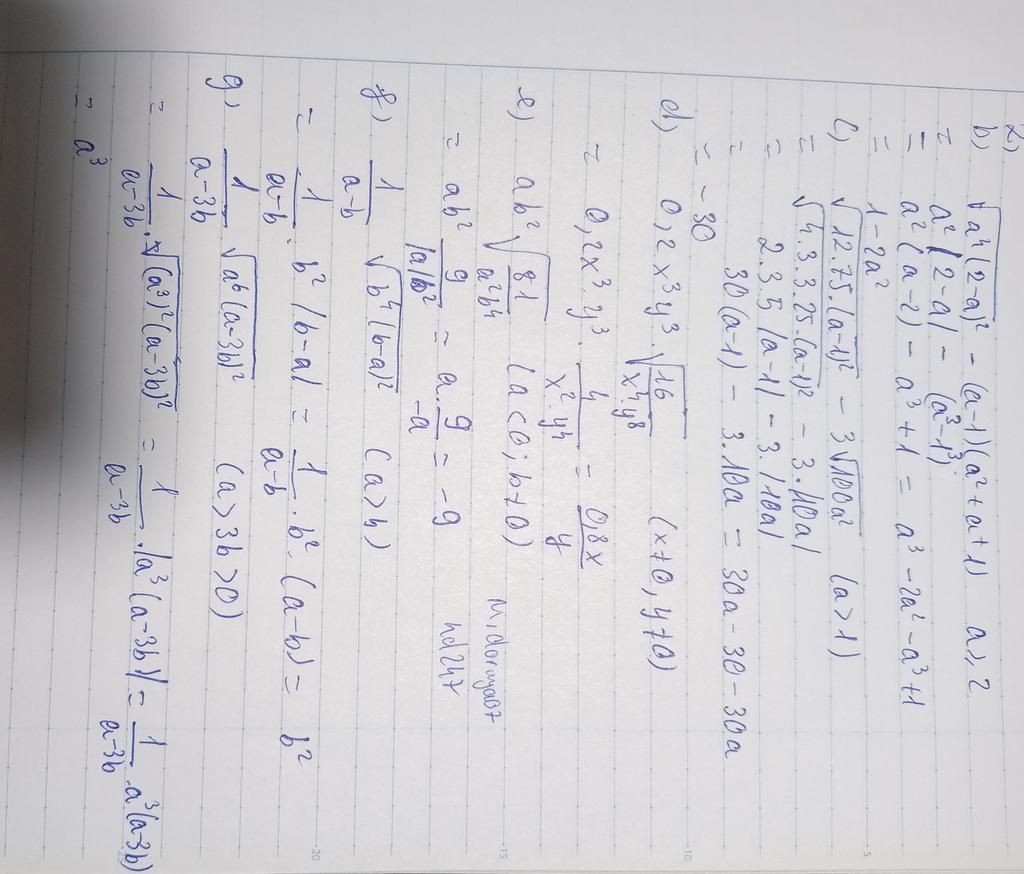 2)
b) √a⁴(2-a)² - (a-1)(a²+a+1) a≥2
= a²|2-a| - (a³-1³)
= a²(a-2) - a³+1 = a³-2a²-a³+1
= 1-2a²
c) √12.75.(a-1)² - 3√100a² (a>1)
= √4.3.3.25.(a-1)² - 3.|10a|
= 2.3.5|a-1| - 3.|10a|
= 30(a-1) - 3.10a = 30a-30-30a
= -30
d) 0,2x³y³.√16/x⁴y⁸ (x≠0, y≠0)
= 0,2x³.y³. 4/x².y⁴ = 0,8x/y
e) ab²√81/a²b⁴ (a<0; b≠0)
= ab² 9/|a|b² = a.9/-a = -9
f) 1/a-b √b⁴(b-a)² (a>b)
= 1/a-b . b²|b-a| = 1/a-b . b².(a-b) = b²
g) 1/a-3b √a⁶(a-3b)² (a>3b>0)
= 1/a-3b . √(a³)²(a-3b)² = 1/a-3b . |a³(a-3b)| = 1/a-3b . a³(a-3b)
= a³
hd247
5
-10
-15
-20